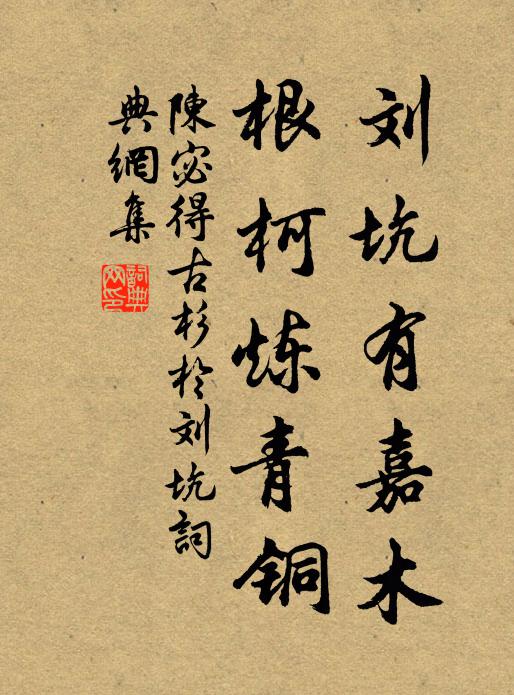 刘坑有嘉木
根柯炼青铜
陳宓得古杉於刘坑詞
典網集
詞典網印